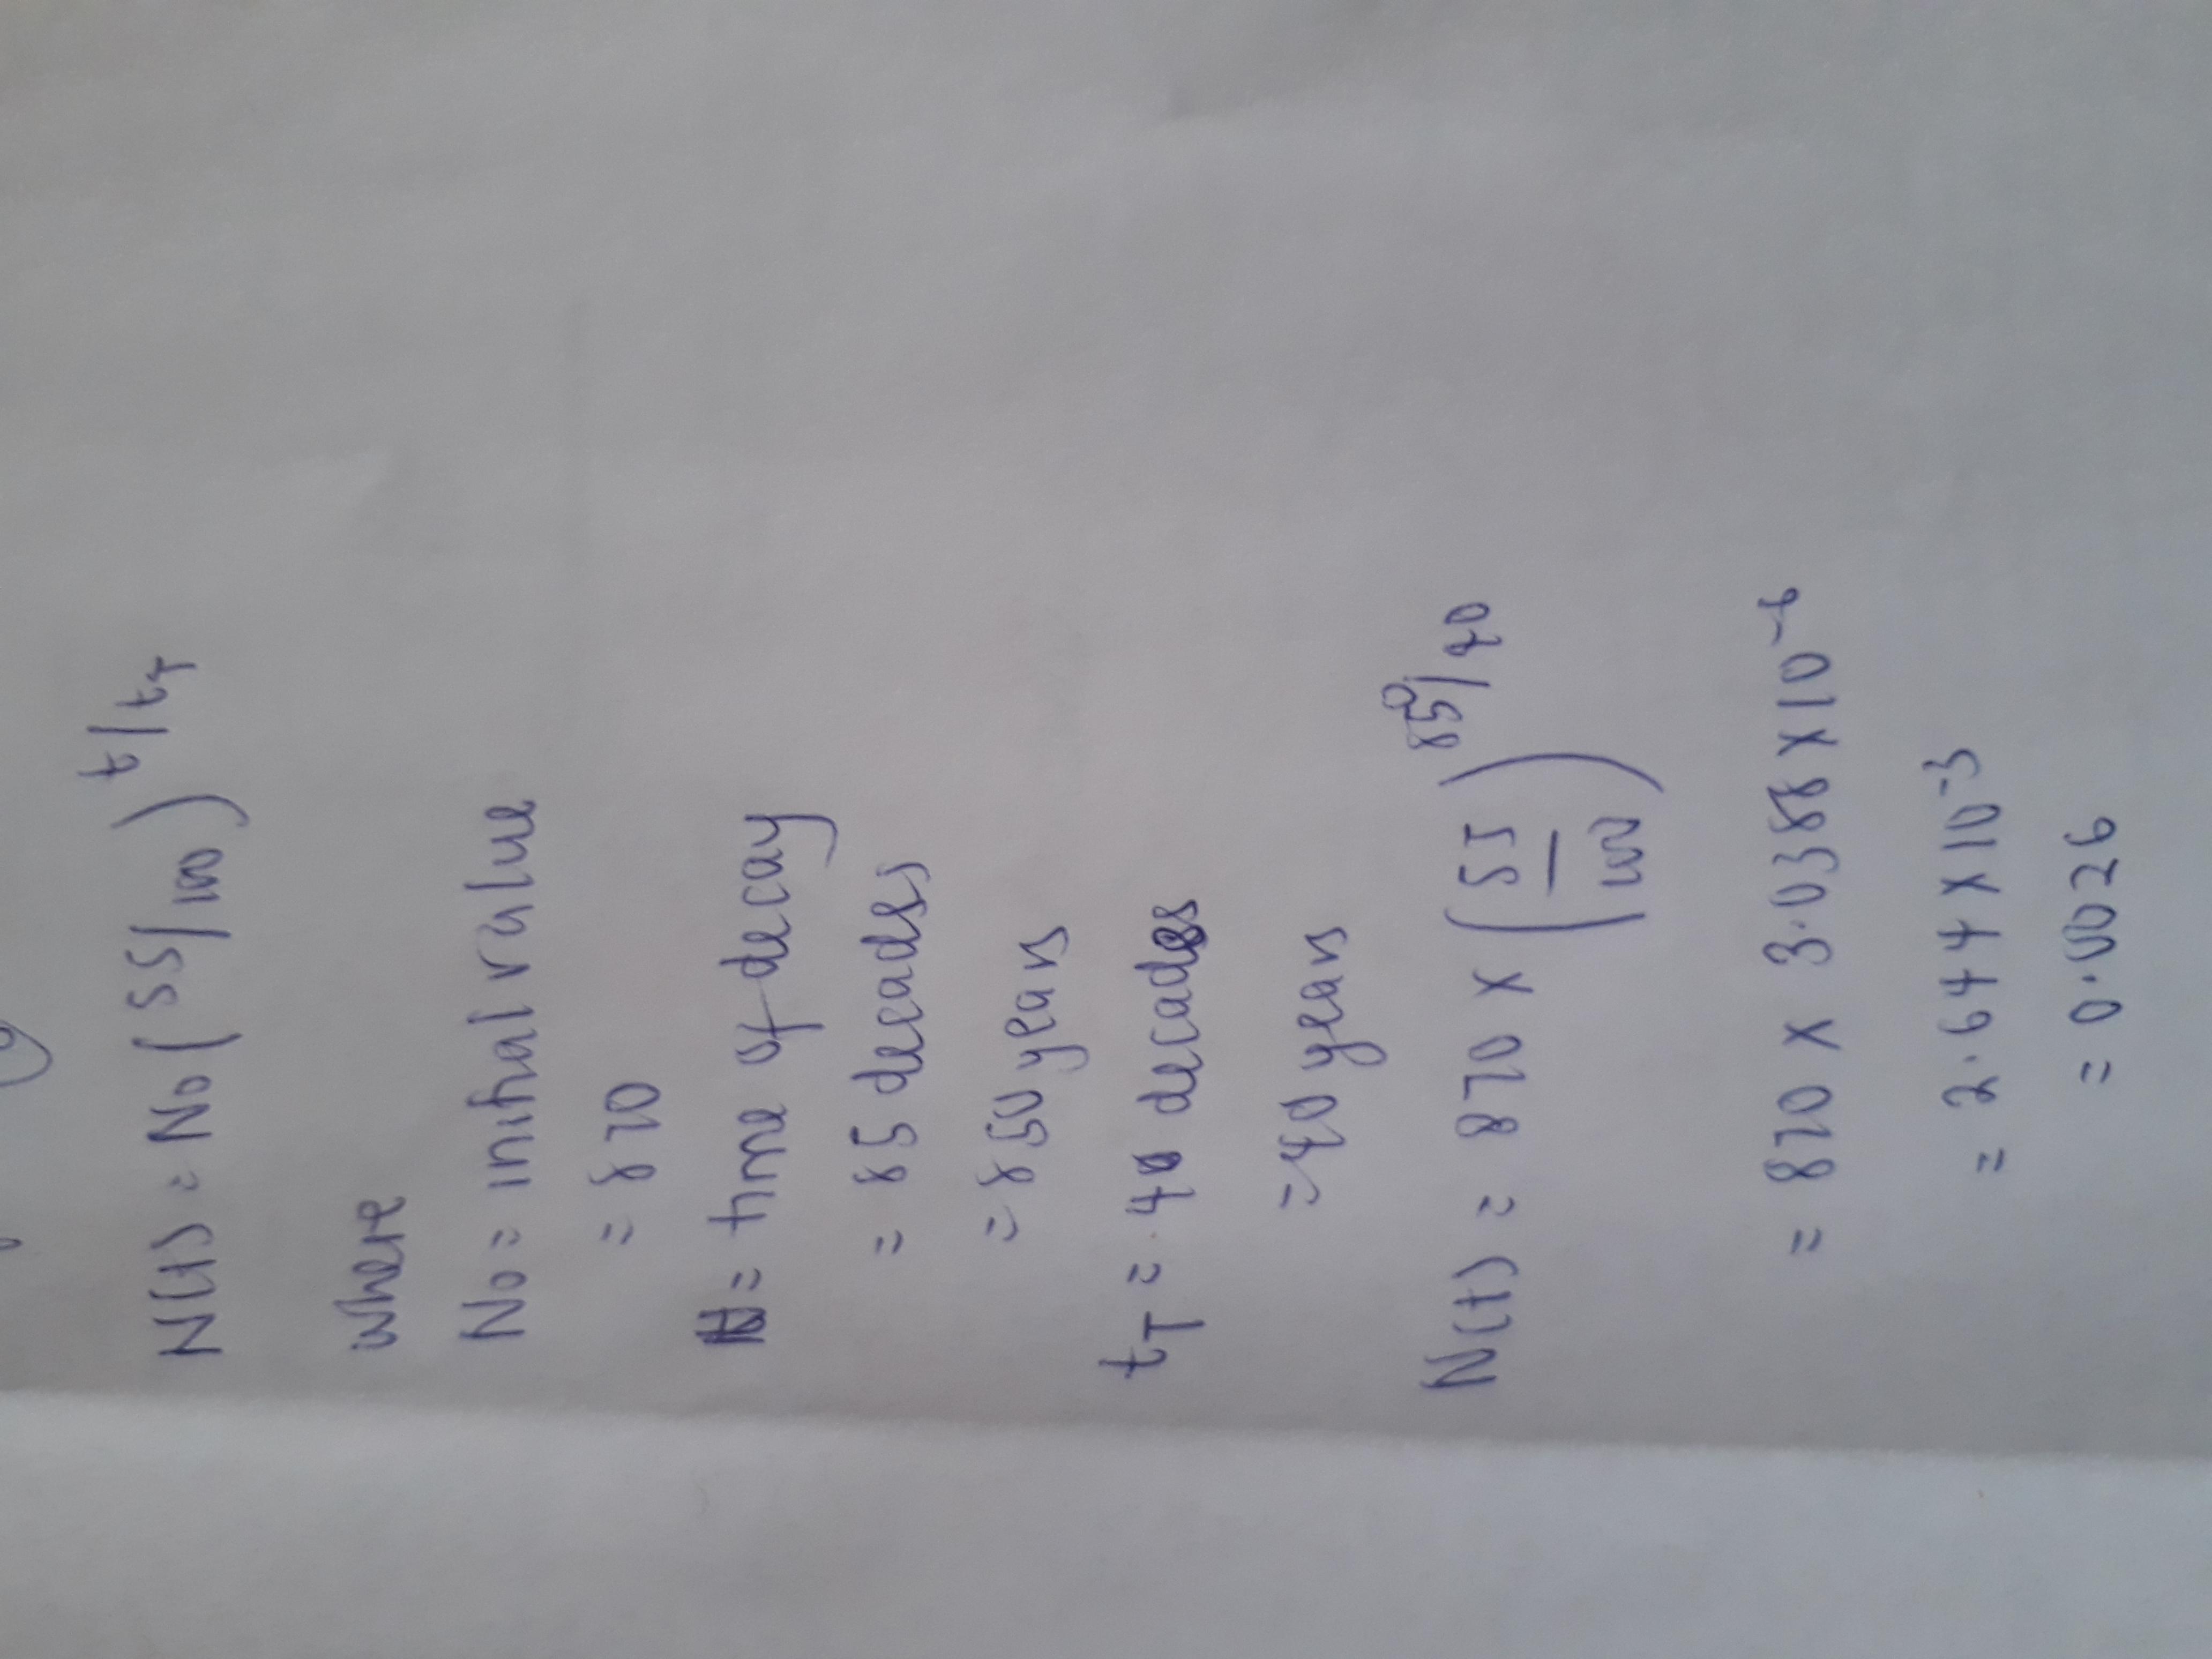 N(t) = N₀(55/100)^t/t_T
where
N₀ = initial value
= 870
t = time of decay
= 85 decades
= 850 years
t_T = 4 decades
= 40 years
N(t) = 870 x (55/100)^850/40
= 870 x 3.0388 x 10^-6
= 2.644 x 10^-3
= 0.0026